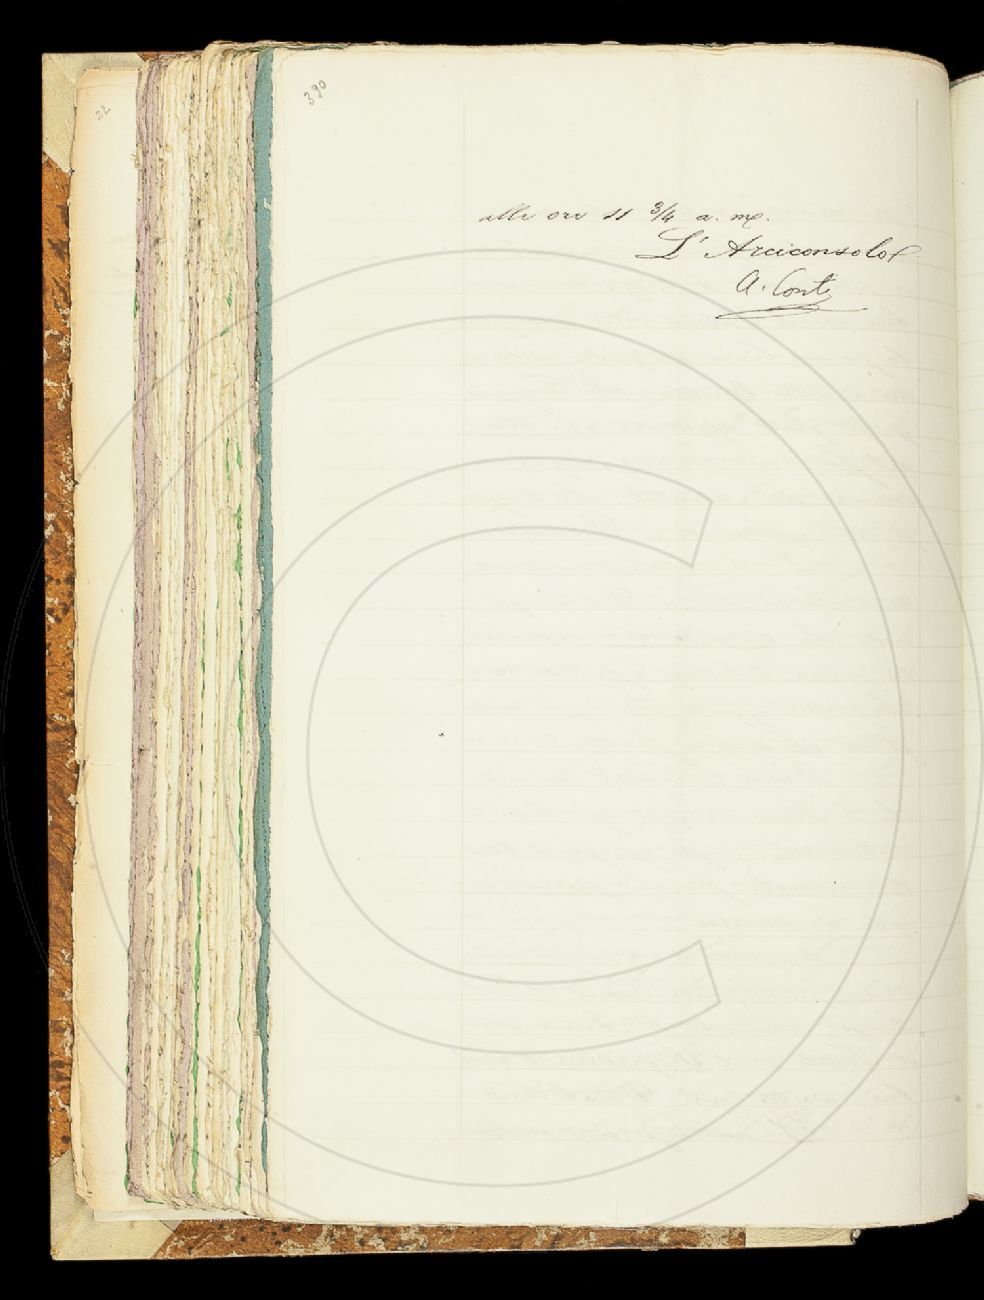 22
390
alle ore 11 3/4 a. m.
L' Arciconsolo
A. Conti